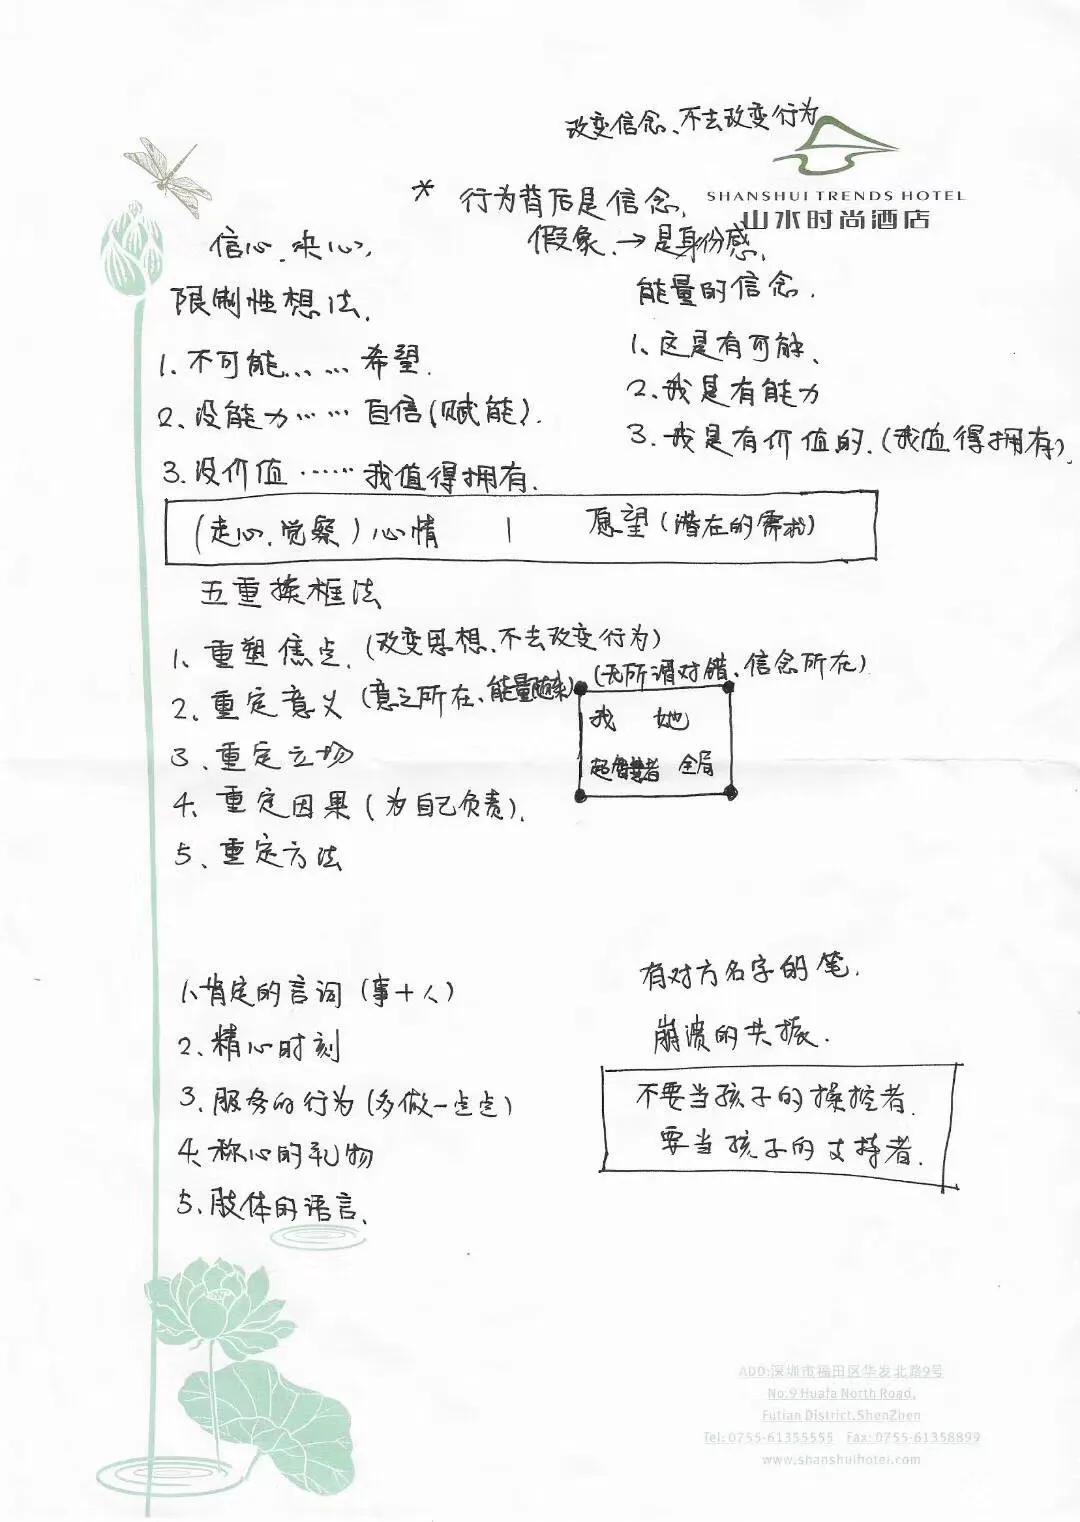 改变信念、不去改变行为
* 行为背后是信念.
SHANSHUI TRENDS HOTEL
山水时尚酒店
信心.决心,
假象.→是身份感.
限制性想法.
能量的信念.
1、不可能……希望.
1、这是有可能、
2、没能力……自信(赋能).
2、我是有能力
3.没价值……我值得拥有.
3.我是有价值的.(我值得拥有).
(走心、觉察)心情 | 愿望(潜在的需求)
五重换框法
1、重塑焦点.(改变思想、不去改变行为)
(无所谓对错、信念所在)
2、重定意义(意之所在、能量随来)
我 她
3、重定立场
智慧者 全局
4、重定因果(为自己负责).
5、重定方法
1、肯定的言词(事+人)
有对方名字的笔.
2、精心时刻
崩溃的共振.
3、服务的行为(多做一点点)
不要当孩子的操控者.
4、称心的礼物
要当孩子的支持者.
5、肢体的语言、
ADD:深圳市福田区华发北路9号
No.9 Huafa North Road,
Futian District.ShenZhen
Tel: 0755-61355555 Fax: 0755-61358899
www.shanshuihotel.com